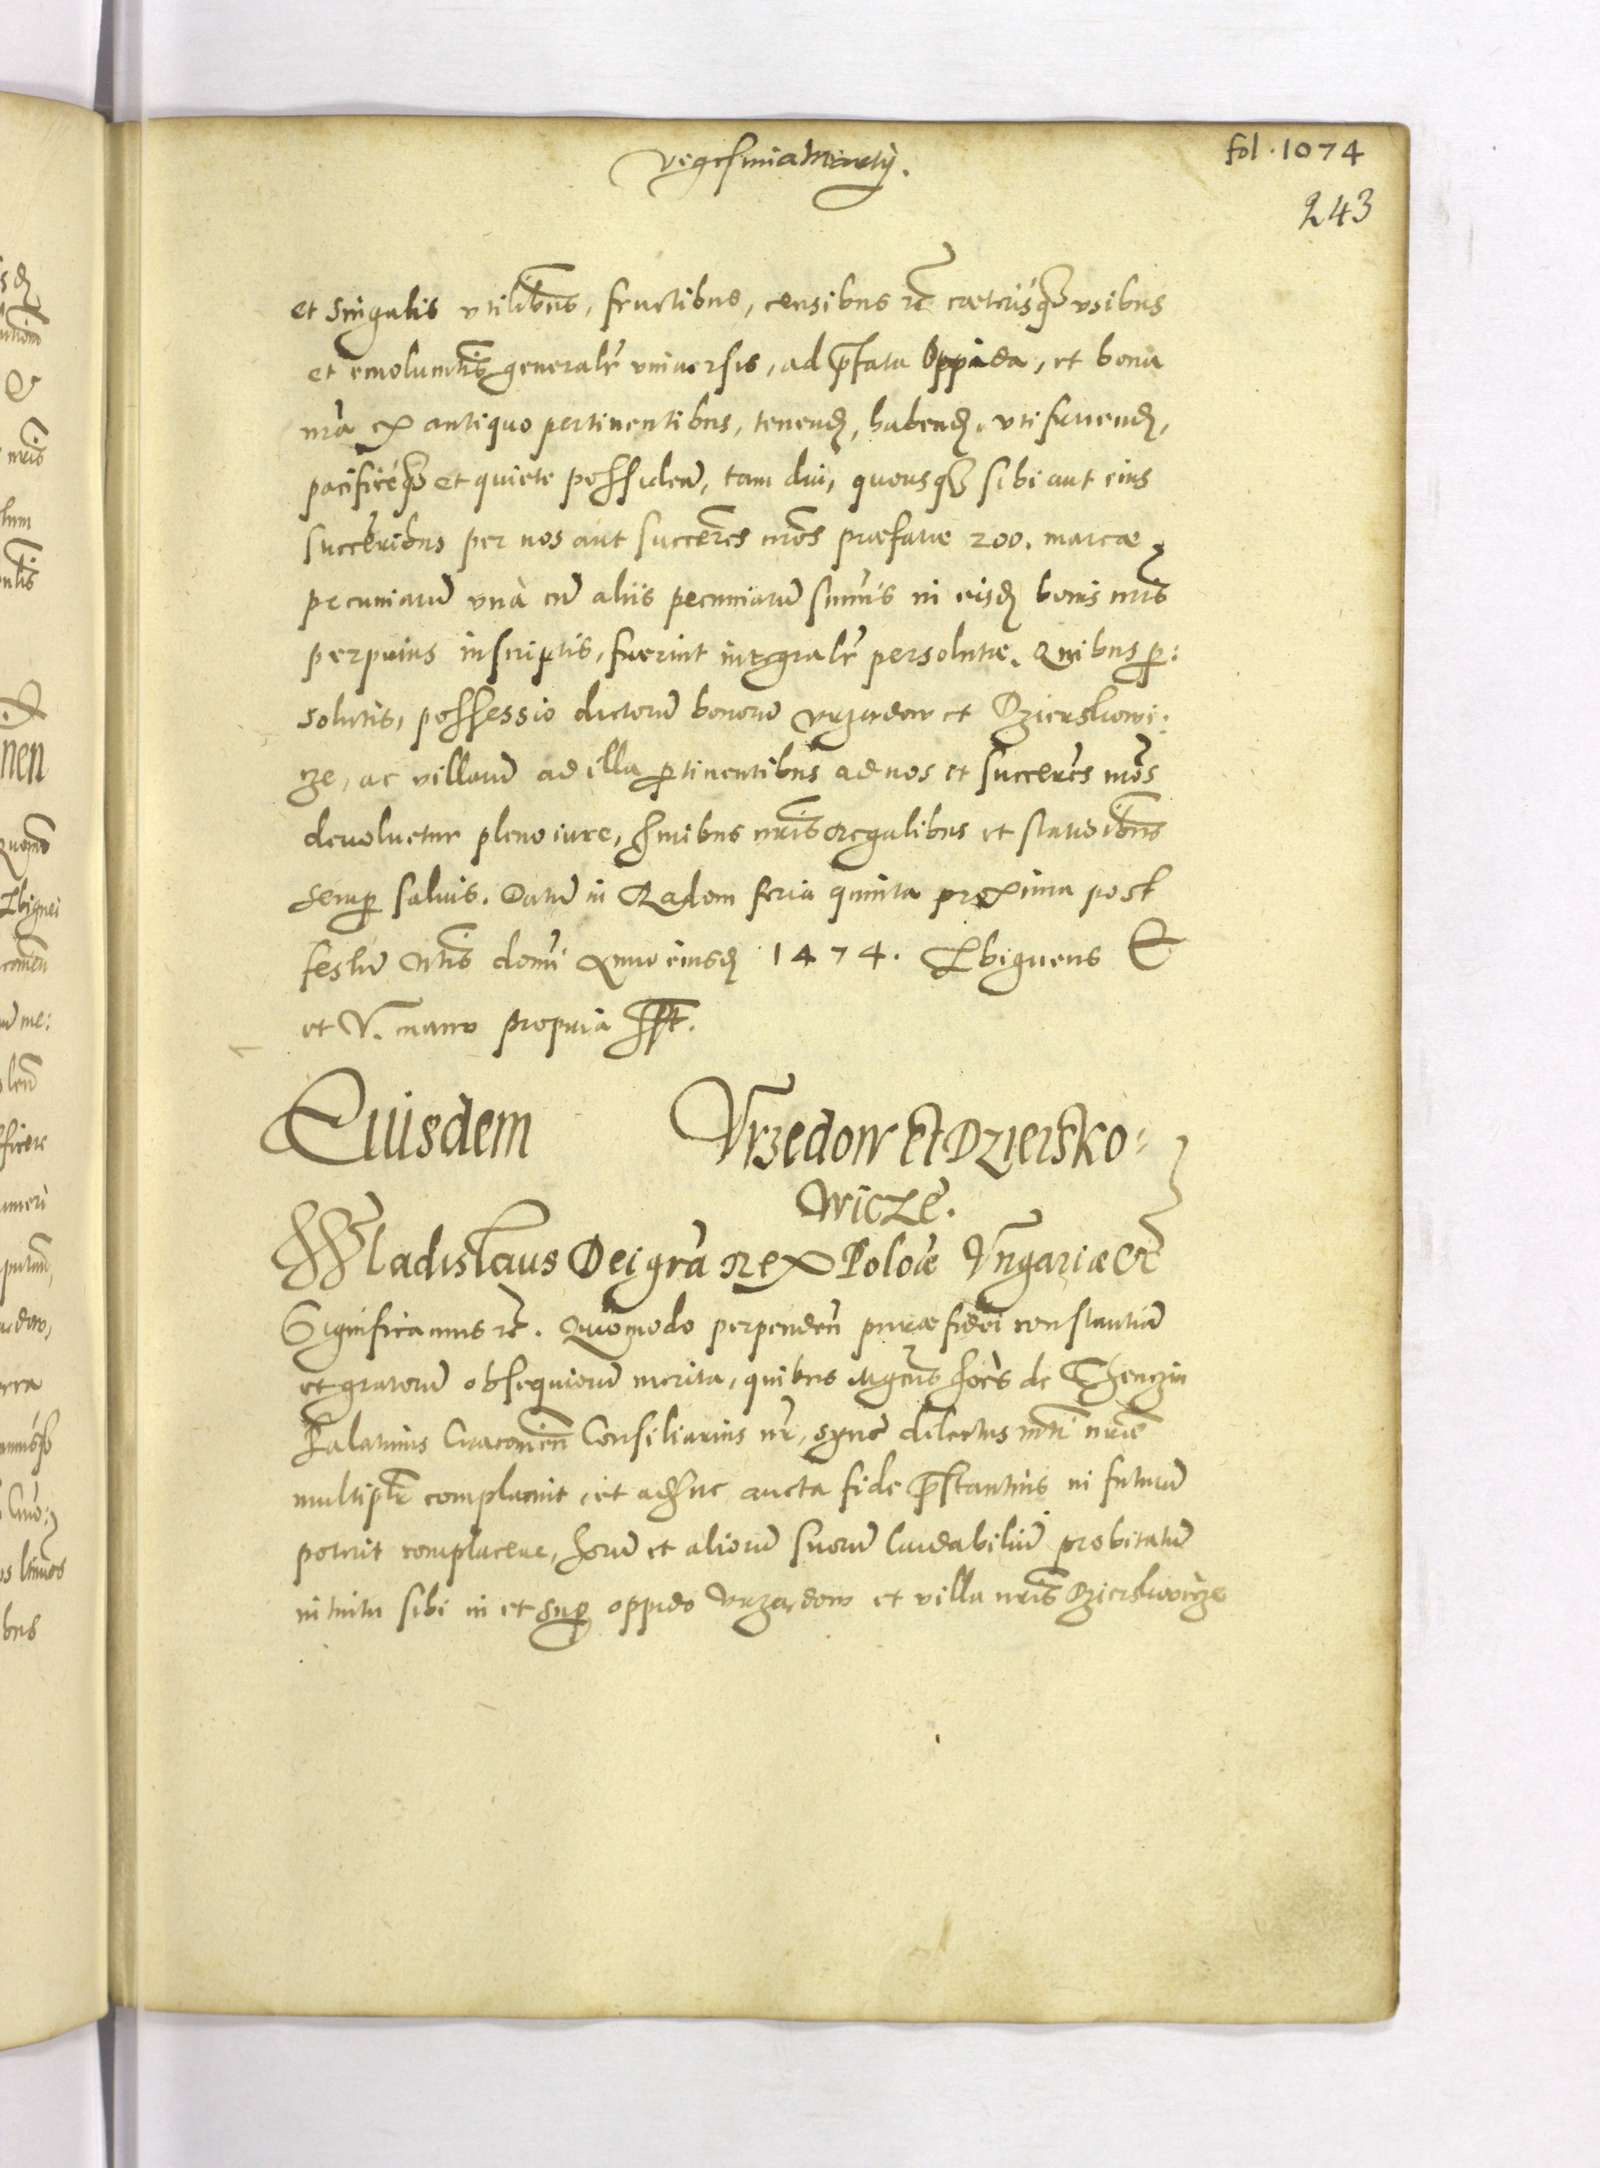 vigesima Martij.
fol. 1074
243
et singulis vtilibus, fructibus, censibus etc cæterisq vsibus
et emolumtis generalr vniuersis, ad pfata Oppida, et bona
nra ex antiquo pertinentibus, tenend, habend, vtifruend,
pacificeq et quiete possidend, tam diu, quousq sibi aut eius
succribus per nos aut succres nros præfatæ 200. marcæ
pecuniaru vnà cu aliis pecuniaru sumis in eisd bonis nris
perprius inscriptis, fuerint integralr persolutæ. Quibus per:
solutis, possessio dictoru bonoru Vrzandow et Dzierskowi:
cze, ac villaru ad illa ptinentibus ad nos et succeres nros
deuoluetur pleno iure, Juribus nris regalibus et stationibus
semp saluis. Datu in Radom feria quinta proxima post
festu Ntis domi Anno eiusd 1474. Sbigneus E
et V. manu propria sspt.
Eiusdem Vrzedow Et Dziersko:
wicze.
Wladislaus Dei gra Rex Polo͞æ Vngariæ etc
Significamus etc. Quomodo perpenden puræ fidei constantia
et gratoru obsequioru merita, quibus Mgcus Joes de Thenczin
Palatinus Cracouien Consiliarius nr, syncr dilectus mti nræ
multiplr complacuit, et adhuc aucta fide pstantius in futuru
poterit complacere, horu et alioru suoru laudabiliu probitatu
intuitu sibi in et sup oppido Vrzandow et villa nris Dzierskowicze